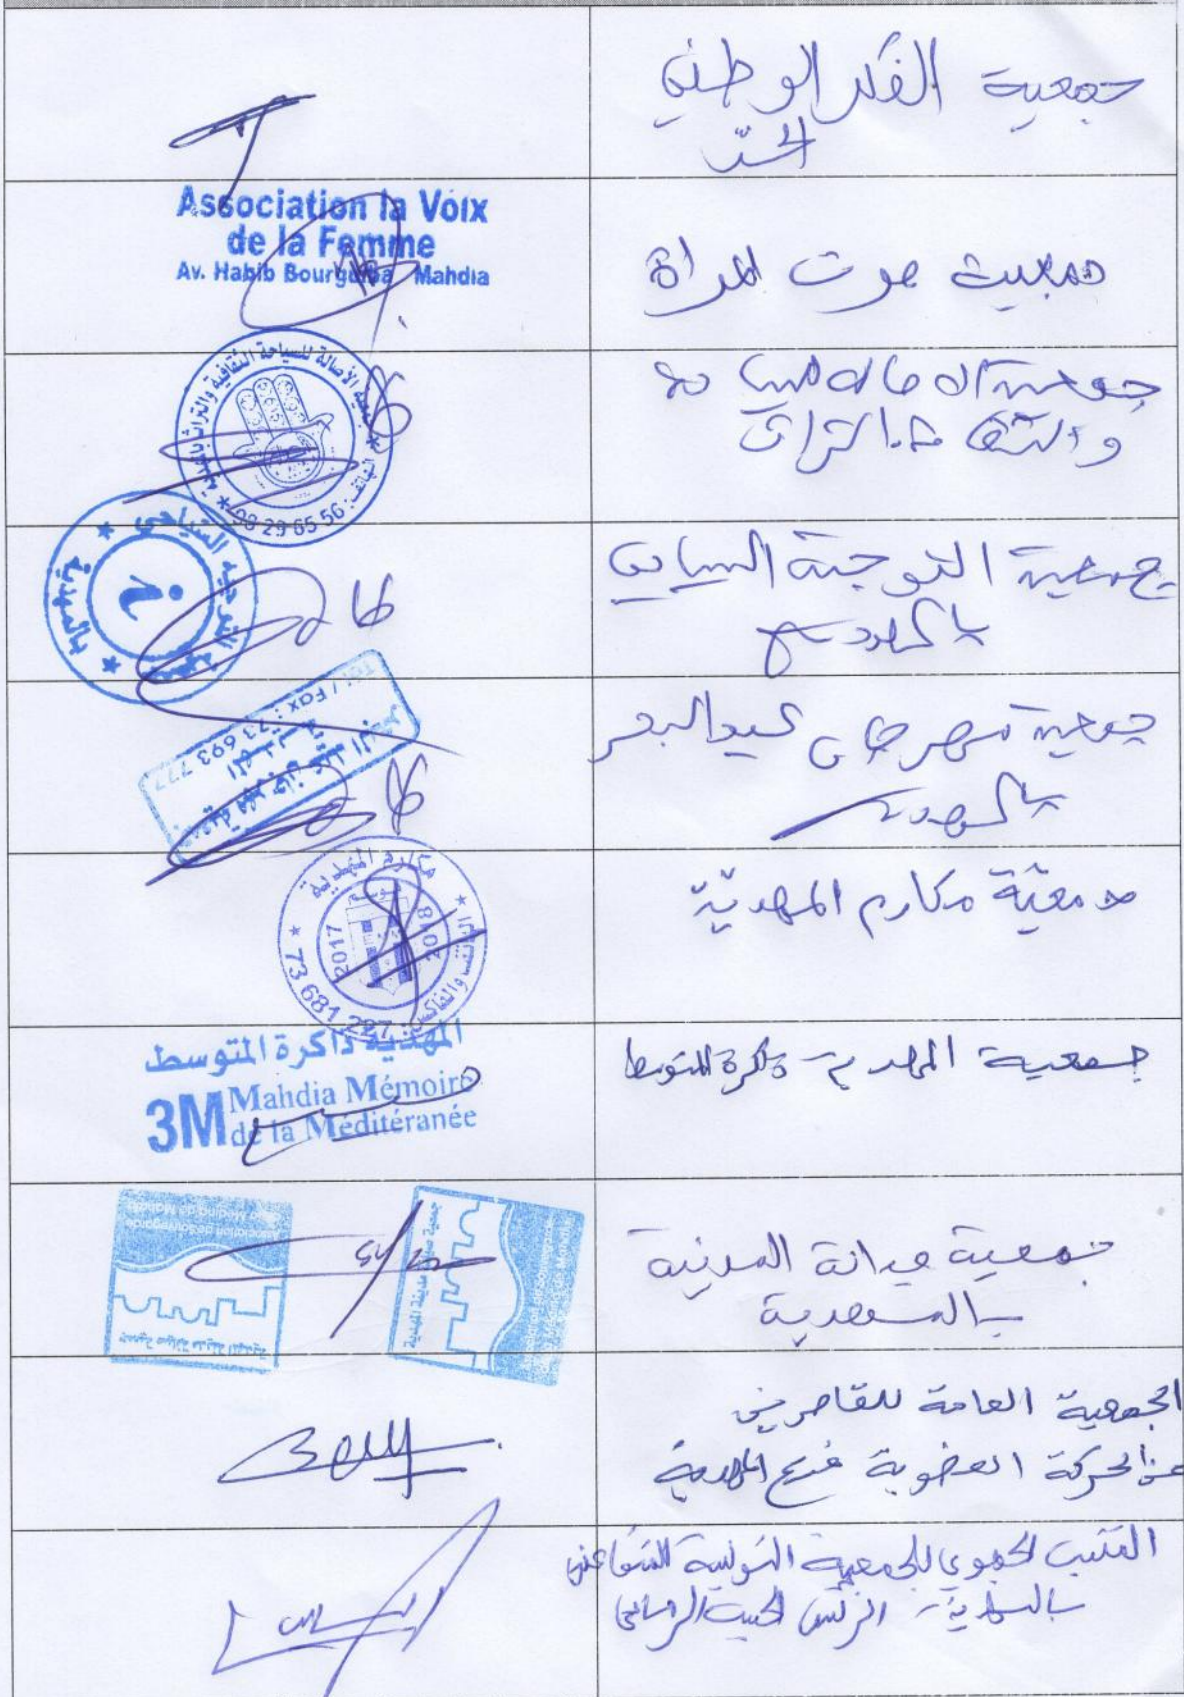 جمعية الفكر الوطني
الحرّ
Association la Voix
de la Femme
Av. Habib Bourguiba Mahdia
جمعية صوت المرأة
جمعية الأصالة للسياحة الثقافية والتراث بالمهدية
الهاتف: 98 29 65 56
جمعية الاصالة للسياحة
والثقافة التراث
جمعية التوجيه السياحي
بالمهدية
جمعية التوجيه السياحي
بالمهدية
جمعية مهرجان عيد البحر
المهدية
Tel / Fax : 73 693 777
جمعية مهرجان عيد البحر
بالمهدية
مكارم المهدية
2017
2018
الهاتف والفاكس: 73 681 227
جمعية مكارم المهديّة
المهدية ذاكرة المتوسط
3M Mahdia Mémoire
de la Méditéranée
جمعية المهدية ذاكرة المتوسط
Association de Sauvegarde
de la Médina de Mahdia
جمعية صيانة مدينة المهدية
جمعية صيانة مدينة المهدية
جمعية صيانة المدينة
بالمهدية
الجمعية العامة للقاصرين
عن الحركة العضوية فرع المهدية
المكتب الجهوي للجمعية التونسية للمتقاعدين
بالمهدية الرئيس الحبيب